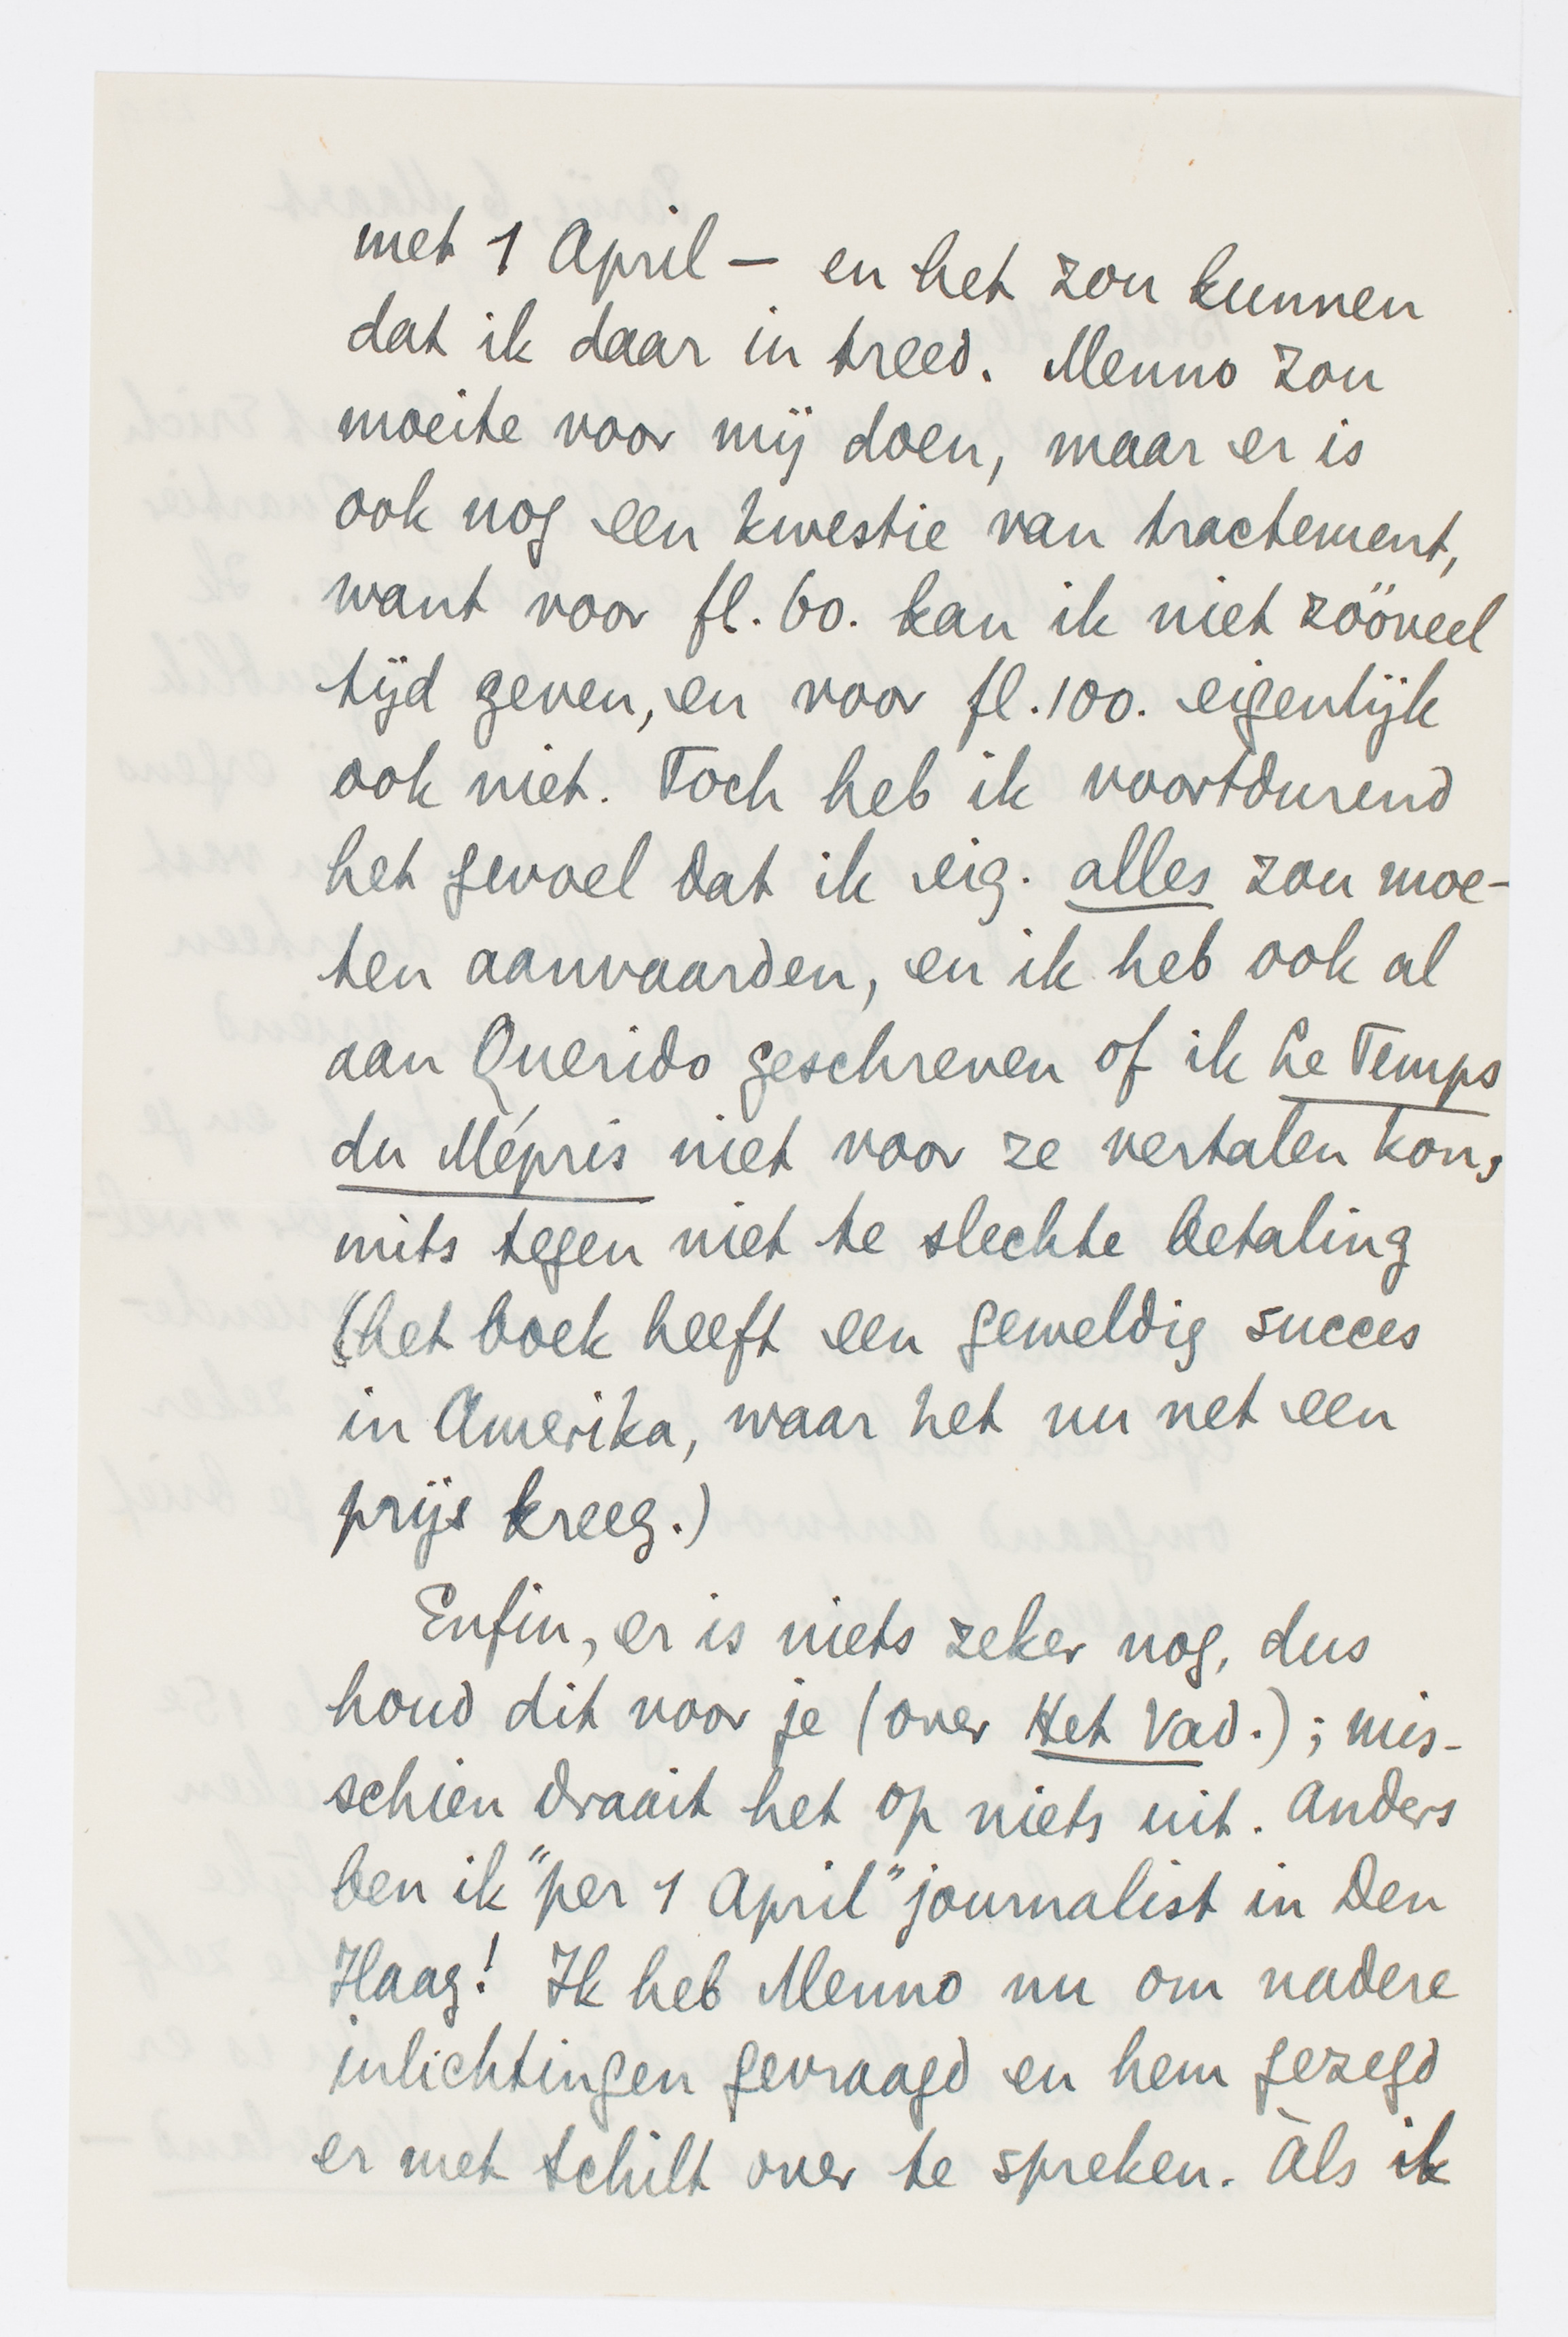 met 1 April — en het zou kunnen
dat ik daar in treed. Menno zou
moeite voor mij doen, maar er is
ook nog een kwestie van tractement,
want voor fl. 60. kan ik niet zóóveel
tijd geven, en voor fl. 100. eigenlijk
ook niet. Toch heb ik voortdurend
het gevoel dat ik eig. alles zou moe-
ten aanvaarden, en ik heb ook al
aan Querido geschreven of ik Le Temps
du Mépris niet voor ze vertalen kon,
mits tegen niet te slechte betaling
(het boek heeft een geweldig succes
in Amerika, waar het nu net een
prijs kreeg.)
Enfin, er is niets zeker nog, dus
houd dit voor je (over Het Vad.); mis-
schien draait het op niets uit. Anders
ben ik "per 1 April" journalist in Den
Haag! Ik heb Menno nu om nadere
inlichtingen gevraagd en hem gezegd
er met Schilt over te spreken. Àls ik